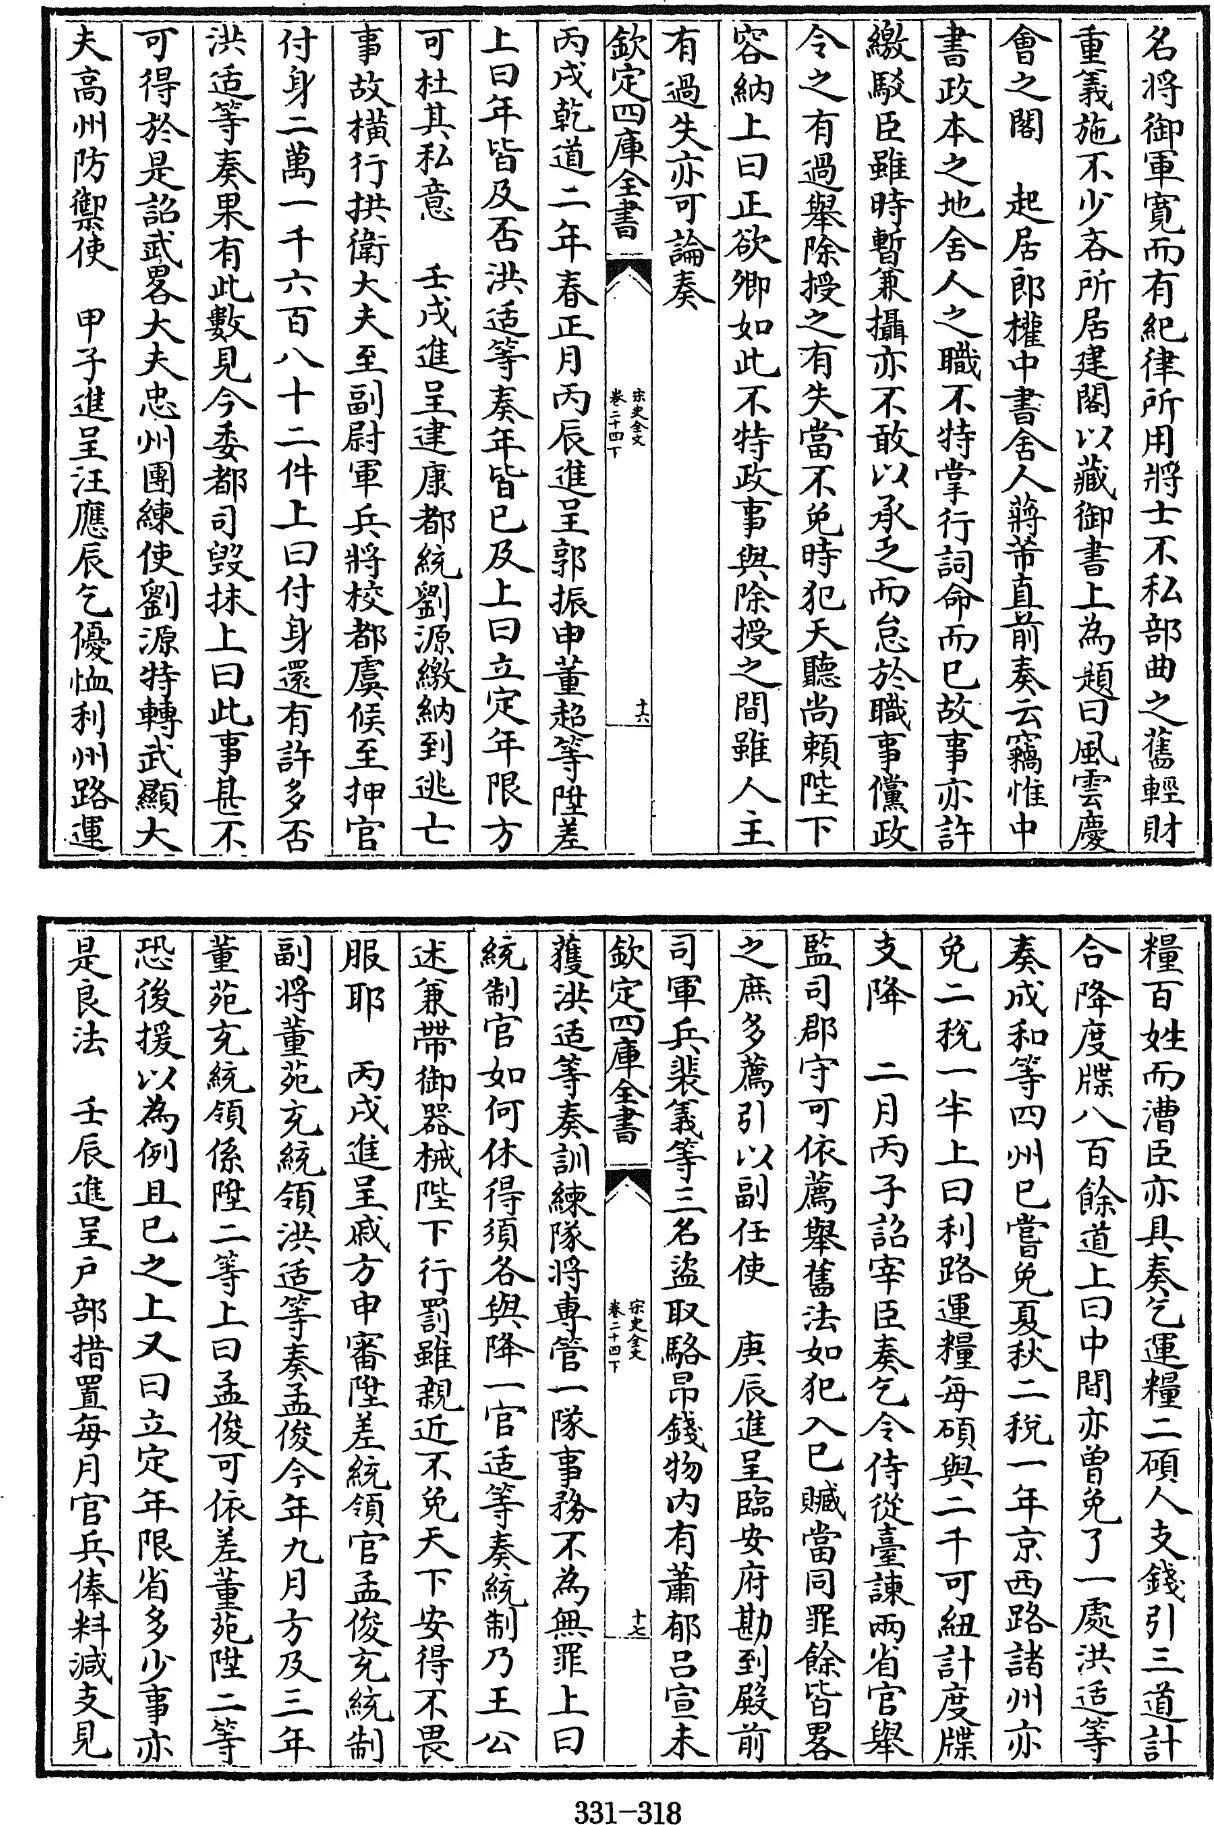 名將御軍寛而有紀律所用將士不私部曲之舊輕財
重義施不少吝所居建閣以藏御書上為題曰風雲慶
會之閣　起居郎權中書舍人蔣芾直前奏云竊惟中
書政本之地舍人之職不特掌行詞命而已故事亦許
繳駁臣雖時暫兼攝亦不敢以承乏而怠於職事儻政
令之有過舉除授之有失當不免時犯天聽尚賴陛下
容納上曰正欲卿如此不特政事與除授之間雖人主
有過失亦可論奏
欽定四庫全書
宋史全文
卷二十四下
十六
丙戌乾道二年春正月丙辰進呈郭振申董超等陞差
上曰年皆及否洪适等奏年皆已及上曰立定年限方
可杜其私意　壬戌進呈建康都統劉源繳納到逃亡
事故橫行拱衛大夫至副尉軍兵將校都虞候至押官
付身二萬一千六百八十二件上曰付身還有許多否
洪适等奏果有此數見今委都司毀抹上曰此事甚不
可得於是詔武畧大夫忠州團練使劉源特轉武顯大
夫高州防禦使　甲子進呈汪應辰乞優恤利州路運
糧百姓而漕臣亦具奏乞運糧二碩人支錢引三道計
合降度牒八百餘道上曰中間亦曾免了一處洪适等
奏成和等四州已嘗免夏秋二稅一年京西路諸州亦
免二稅一半上曰利路運糧每碩與二千可紐計度牒
支降　二月丙子詔宰臣奏乞令侍從臺諫兩省官舉
監司郡守可依薦舉舊法如犯入已贓當同罪餘皆畧
之庶多薦引以副任使　庚辰進呈臨安府勘到殿前
司軍兵裴義等三名盜取駱昂錢物内有蕭郁吕宣未
欽定四庫全書
宋史全文
卷二十四下
十七
獲洪适等奏訓練隊將專管一隊事務不為無罪上曰
統制官如何休得須各與降一官适等奏統制乃王公
述兼帶御器械陛下行罰雖親近不免天下安得不畏
服耶　丙戌進呈戚方申審陞差統領官孟俊充統制
副將董苑充統領洪适等奏孟俊今年九月方及三年
董苑充統領係陞二等上曰孟俊可依差董苑陞二等
恐後援以為例且已之上又曰立定年限省多少事亦
是良法　壬辰進呈戶部措置每月官兵俸料減支見
331-318